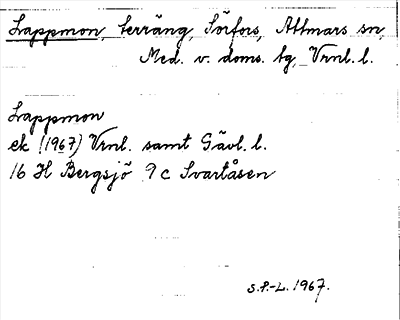 Lappmon, terräng, Sörfors, Attmars sn,
Med. v. doms. tg, Vrnl. l.
Lappmon
ek (1967) Vrnl. samt Gävl. l.
16 H Bergsjö 9 c Svartåsen
S.P.-L. 1967.